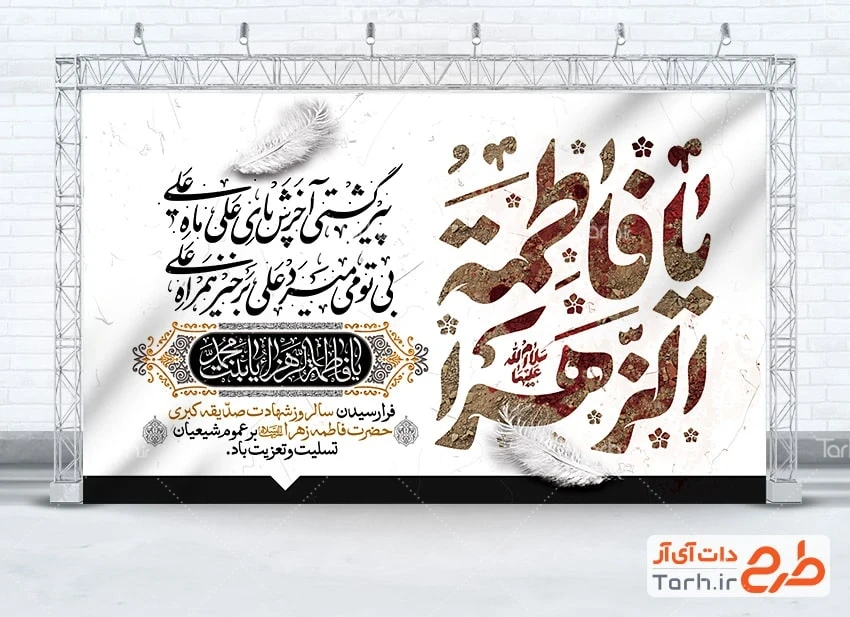 یا فاطمة
الزهرا
سلام الله علیها
پیر گشتی آخرش پای علی ماه علی
بی تو می میرد علی برخیز همراه علی
یا فاطمة الزهرا یا بنت محمد
فرارسیدن سالروز شهادت صدیقه کبری
حضرت فاطمه زهرا بر عموم شیعیان
تسلیت و تعزیت باد.
طرح دات آی آر
Tarh.ir